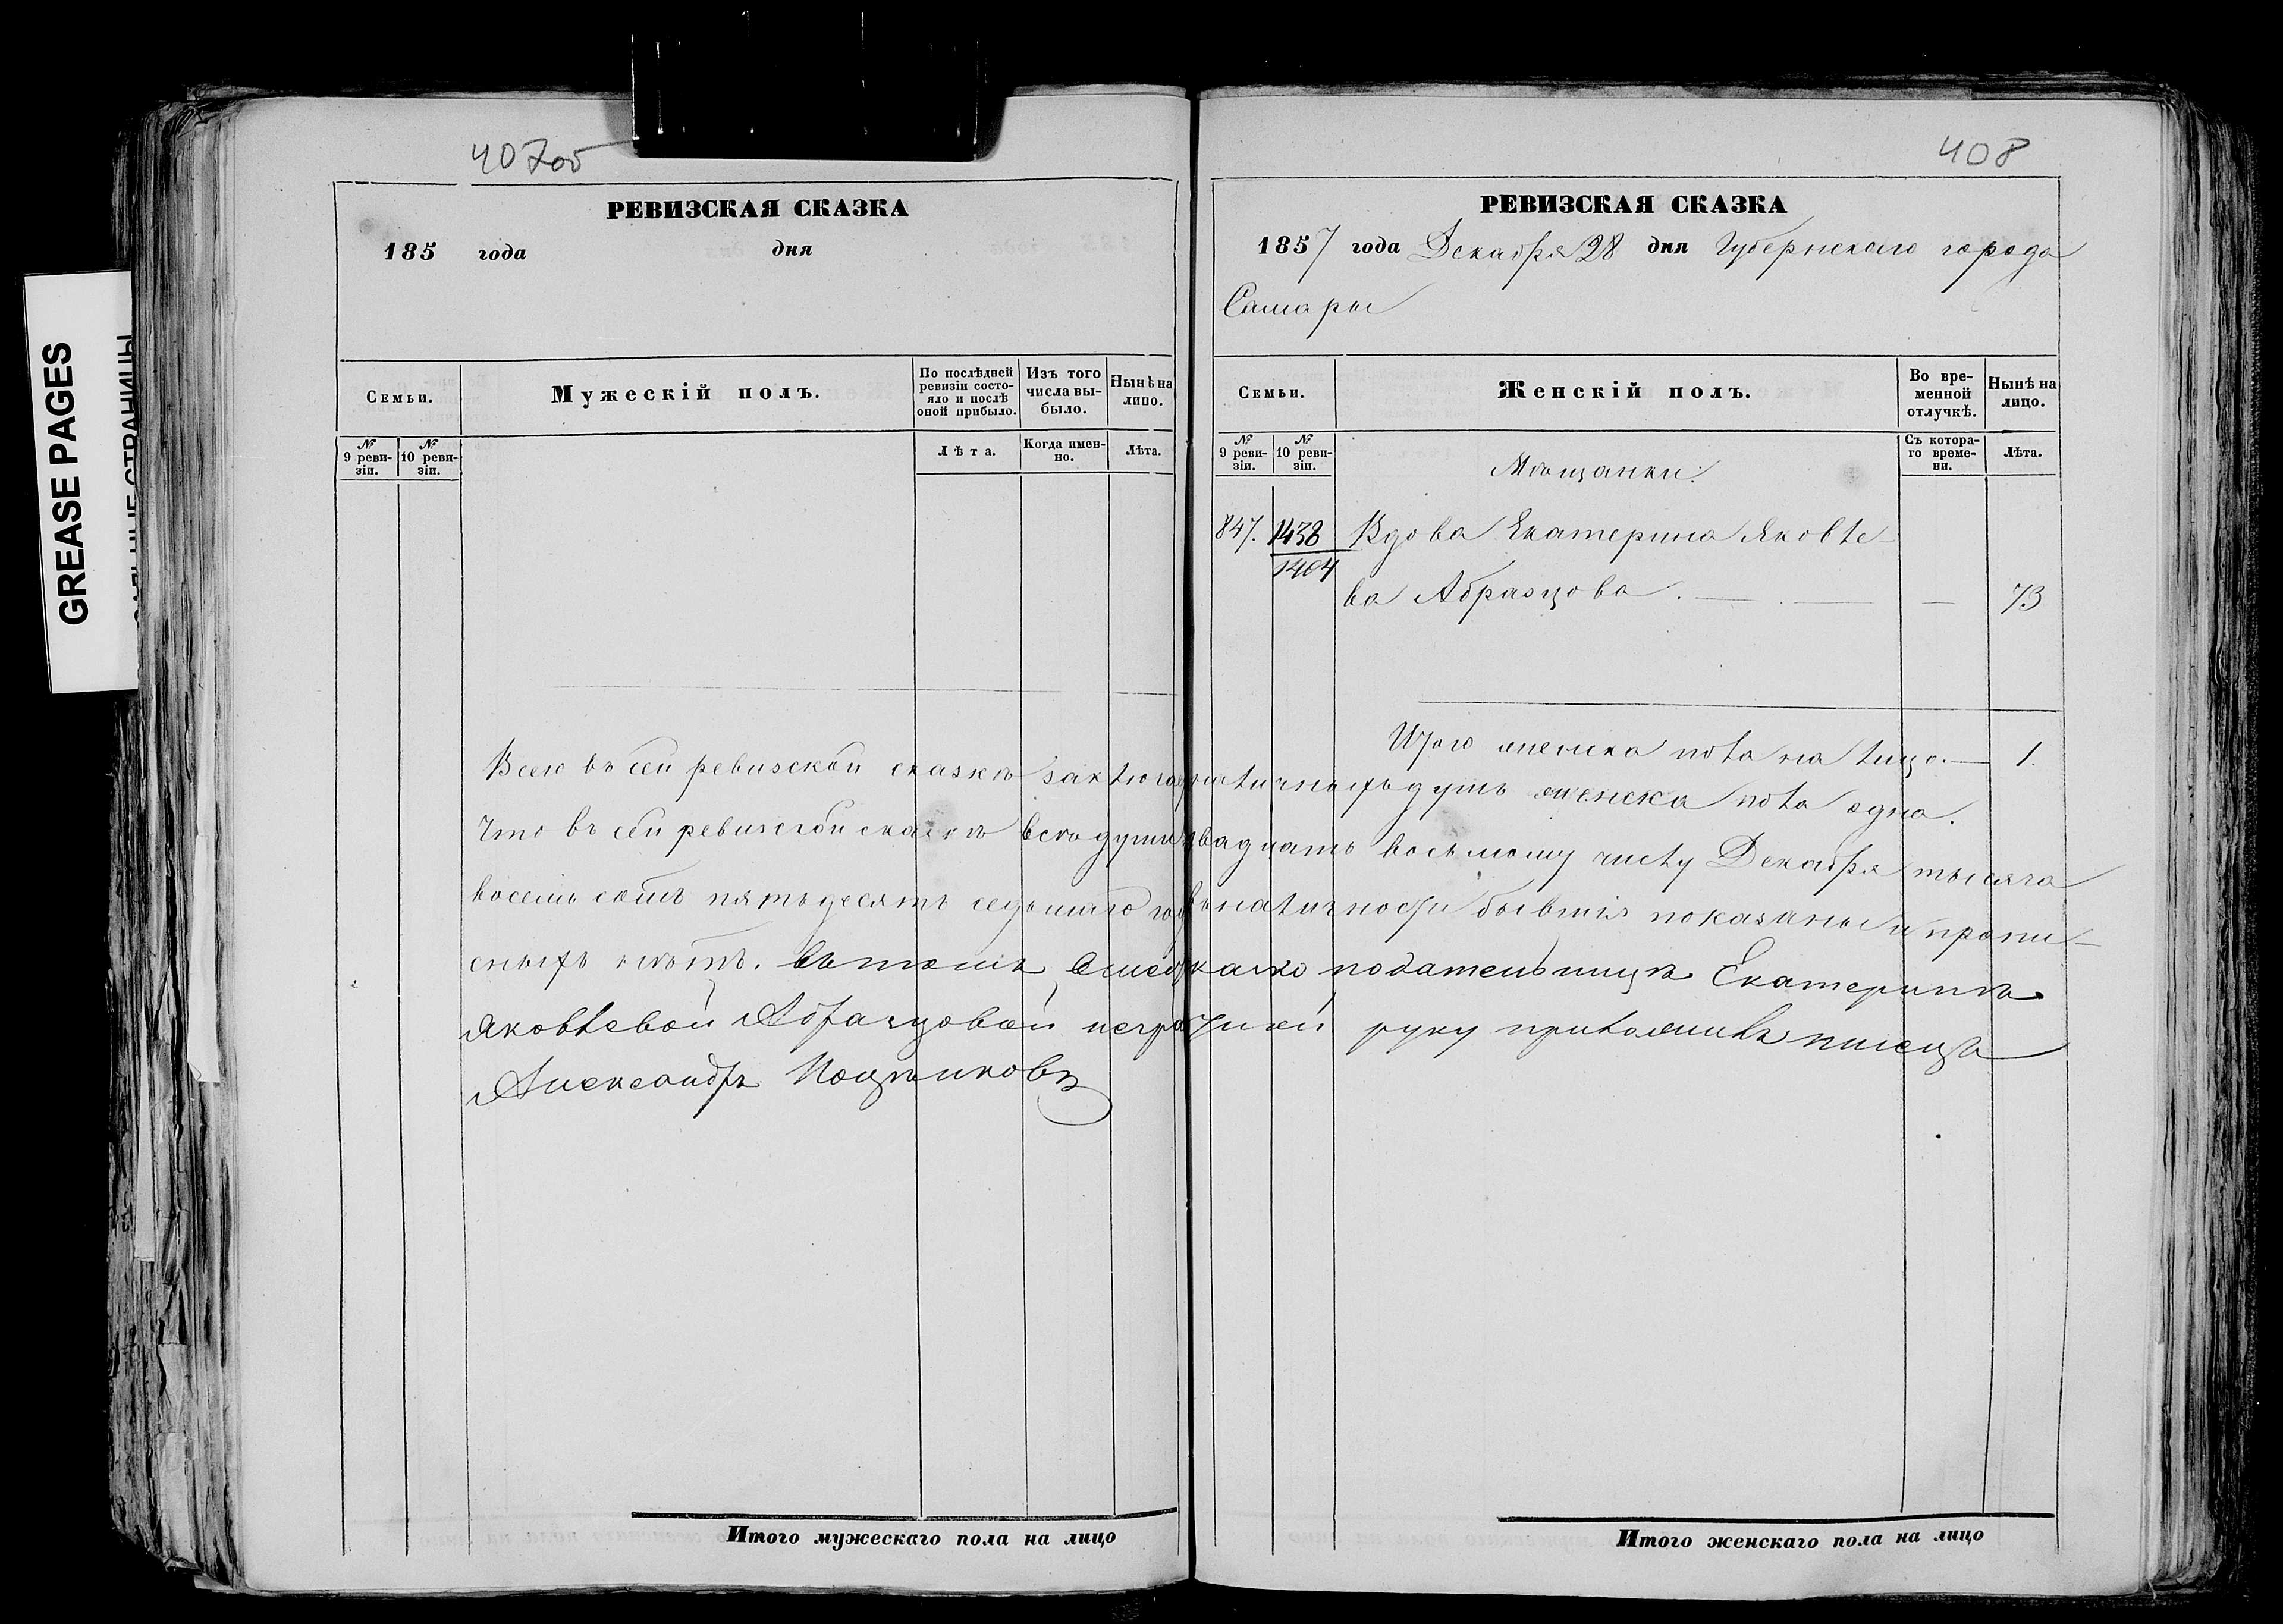 GREASE PAGES
407об
РЕВИЗСКАЯ СКАЗКА
185 года дня
Семьи.
Мужескій полъ.
По послѣдней ревизіи состояло и послѣ оной прибыло.
Изъ того числа выбыло.
Нынѣ на лицо.
№ 9 ревизіи.
№ 10 ревизіи.
Лѣта.
Когда именно.
Лѣта.
408
РЕВИЗСКАЯ СКАЗКА
1857 года Декабря 28 дня Губернскаго города
Самары
Семьи.
Женскій полъ.
Во временной отлучкѣ.
Нынѣ на лицо.
№ 9 ревизіи.
№ 10 ревизіи.
Мѣщанки:
Съ котораго времени.
Лѣта.
847. 1438 Вдова Екатерина Яковле-
1404
ва Абразцова . — . — — 73
Итого женска пола на лицо. — 1.
Всего въ сей ревизской сказкѣ наличныхъ душъ женска пола одна.
Что въ сей ревизской сказкѣ всѣ души двадцать восьмому числу Декабря тысяча
восемь сотъ пятьдесятъ седьмаго года въ наличности бывшія показаны и пропи-
сныхъ нѣтъ. Въ томъ подательницѣ Екатеринѣ
Яковлевой Абразцовой неграмотной руку приложилъ писецъ
Александръ
Итого мужескаго пола на лицо
Итого женскаго пола на лицо